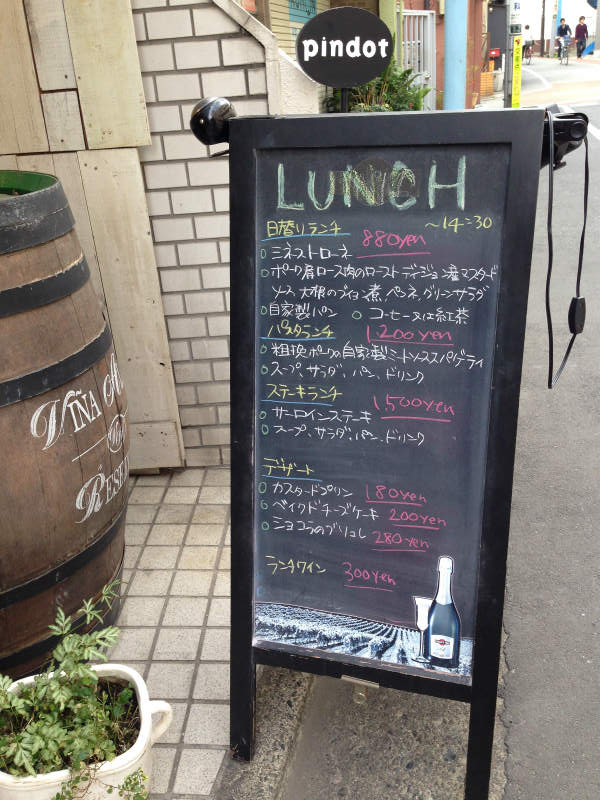 pindot
LUNCH
日替りランチ 880yen ～14:30
ミネストローネ
ポーク肩ロース肉のロースト ディジョン産マスタード
ソース、大根のブイヨン煮、ペンネ、グリーンサラダ
自家製パン コーヒー又は紅茶
パスタランチ 1,200yen
粗挽ポークの自家製ミートソーススパゲティ
スープ、サラダ、パン、ドリンク
ステーキランチ 1,500yen
サーロインステーキ
スープ、サラダ、パン、ドリンク
デザート
カスタードプリン 180yen
ベイクドチーズケーキ 200yen
ショコラのブリュレ 280yen
ランチワイン 300yen
VIÑA
RESER